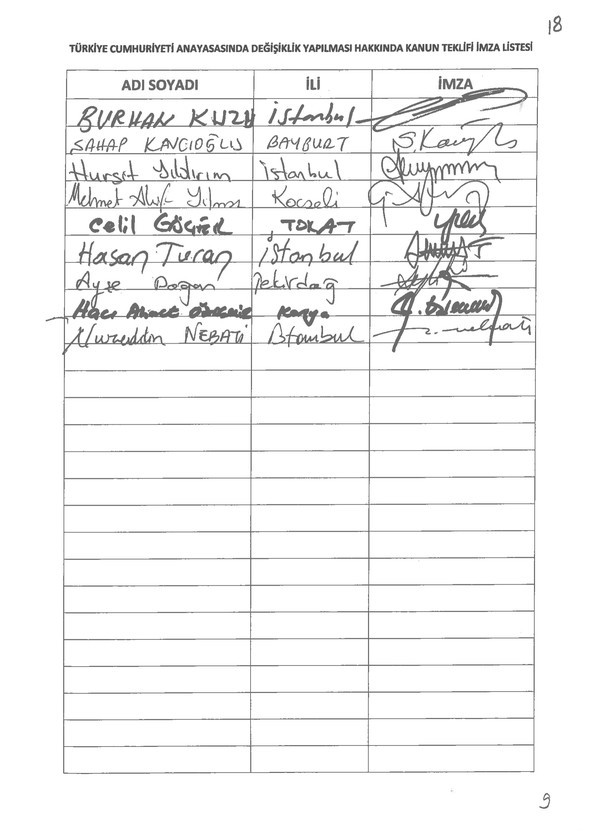 18
TÜRKİYE CUMHURİYETİ ANAYASASINDA DEĞİŞİKLİK YAPILMASI HAKKINDA KANUN TEKLİFİ İMZA LİSTESİ
ADI SOYADI İLİ İMZA
BURHAN KUZU İstanbul
SAHAP KAVCIOĞLU BAYBURT S.Kavcıoğlu
Hurşit Yıldırım İstanbul
Mehmet Akif Yılmaz Kocaeli
Celil GÖÇER TOKAT
Hasan Turan İstanbul
Ayşe Doğan Tekirdağ
Hacı Ahmet Özdemir Konya
Nureddin NEBATİ İstanbul n.nebati
9